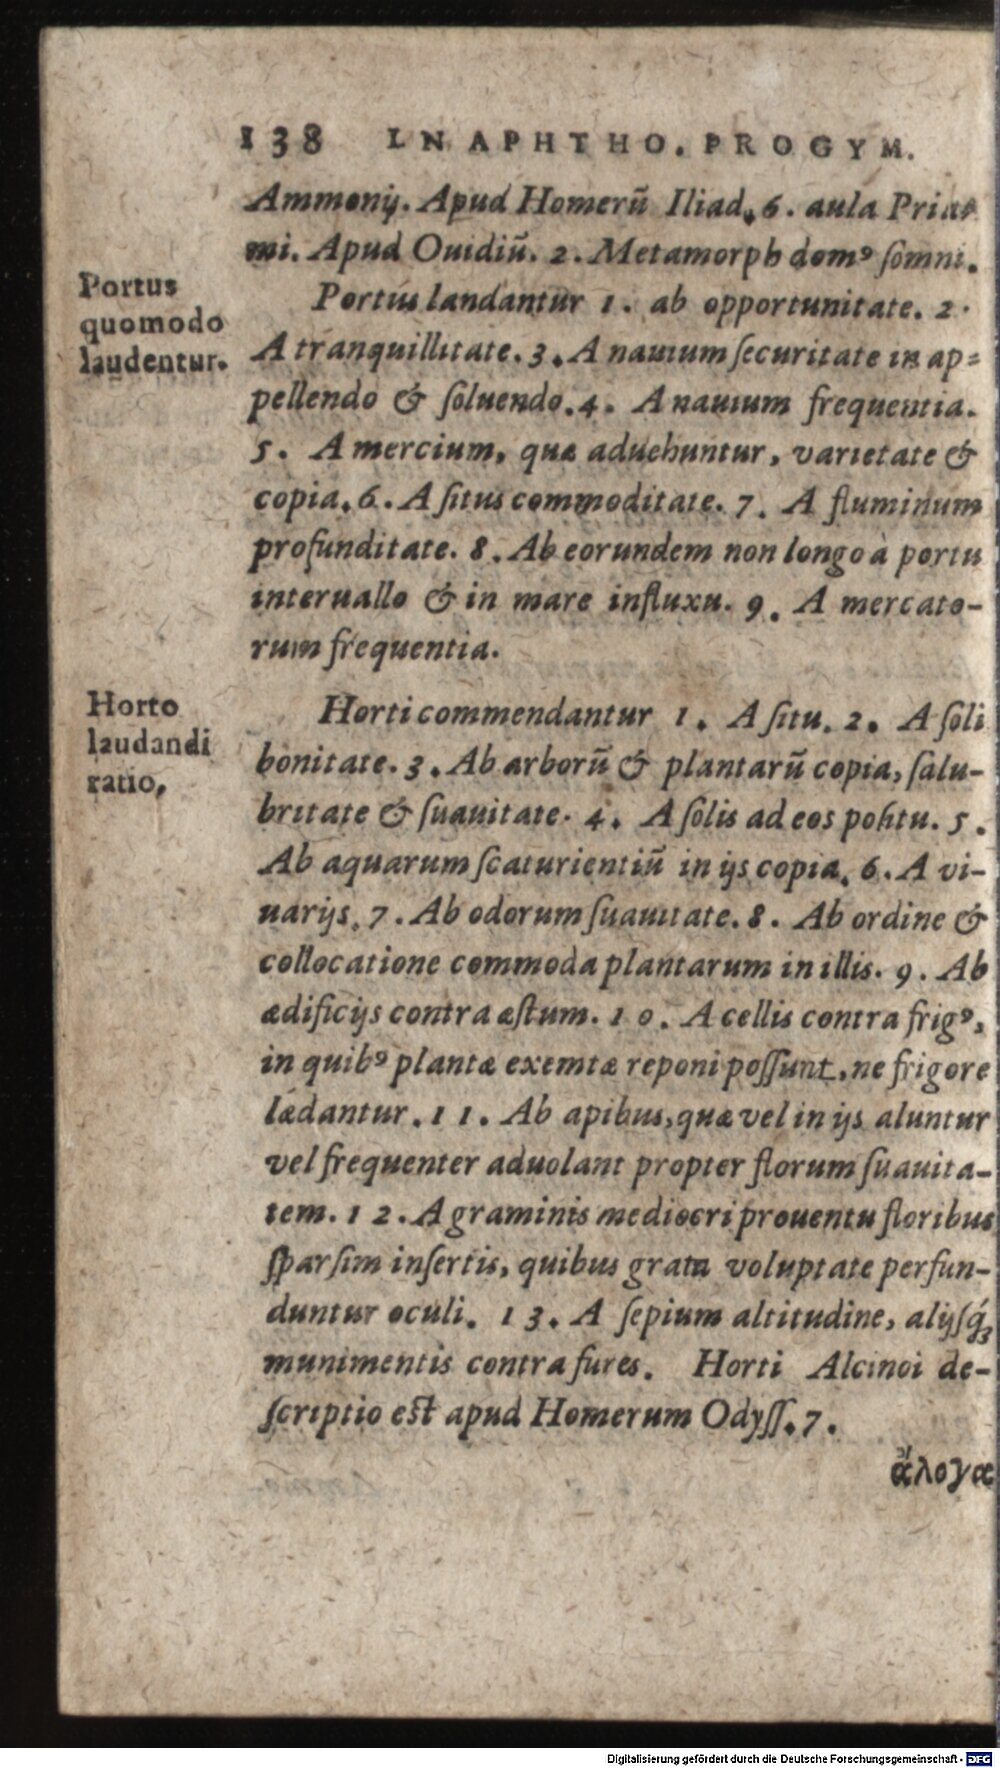 138 IN APHTHO. PROGYM.
Ammonij. Apud Homerū Iliad. 6. aula Pria-
mi. Apud Ouidiū. 2. Metamorph domꝰ ſomni.
Portus
quomodo
laudentur.
Portus landantur 1. ab opportunitate. 2.
A tranquillitate. 3. A nauium ſecuritate in ap=
pellendo & ſoluendo. 4. A nauium frequentia.
5. A mercium, quæ aduehuntur, varietate &
copia. 6. A ſitus commoditate. 7. A fluminum
profunditate. 8. Ab eorundem non longo à portu
interuallo & in mare influxu. 9. A mercato-
rum frequentia.
Horto
laudandi
ratio.
Horti commendantur 1. A ſitu. 2. A ſoli
bonitate. 3. Ab arborū & plantarū copia, ſalu-
britate & ſuauitate. 4. A ſolis ad eos poſitu. 5.
Ab aquarum ſcaturientiū in ijs copia. 6. A vi-
uarijs. 7. Ab odorum ſuauitate. 8. Ab ordine &
collocatione commoda plantarum in illis. 9. Ab
ædificijs contra æſtum. 10. A cellis contra frigꝰ,
in quibꝰ plantæ exemtæ reponi poſſunt, ne frigore
lædantur. 11. Ab apibus, quæ vel in ijs aluntur
vel frequenter aduolant propter florum ſuauita-
tem. 12. A graminis mediocri prouentu floribus
ſparſim inſertis, quibus grata voluptate perfun-
duntur oculi. 13. A ſepium altitudine, alijſq́ꝫ
munimentis contra fures. Horti Alcinoi de-
ſcriptio eſt apud Homerum Odyſſ. 7.
ἄλογα
Digitalisierung gefördert durch die Deutsche Forschungsgemeinschaft - DFG